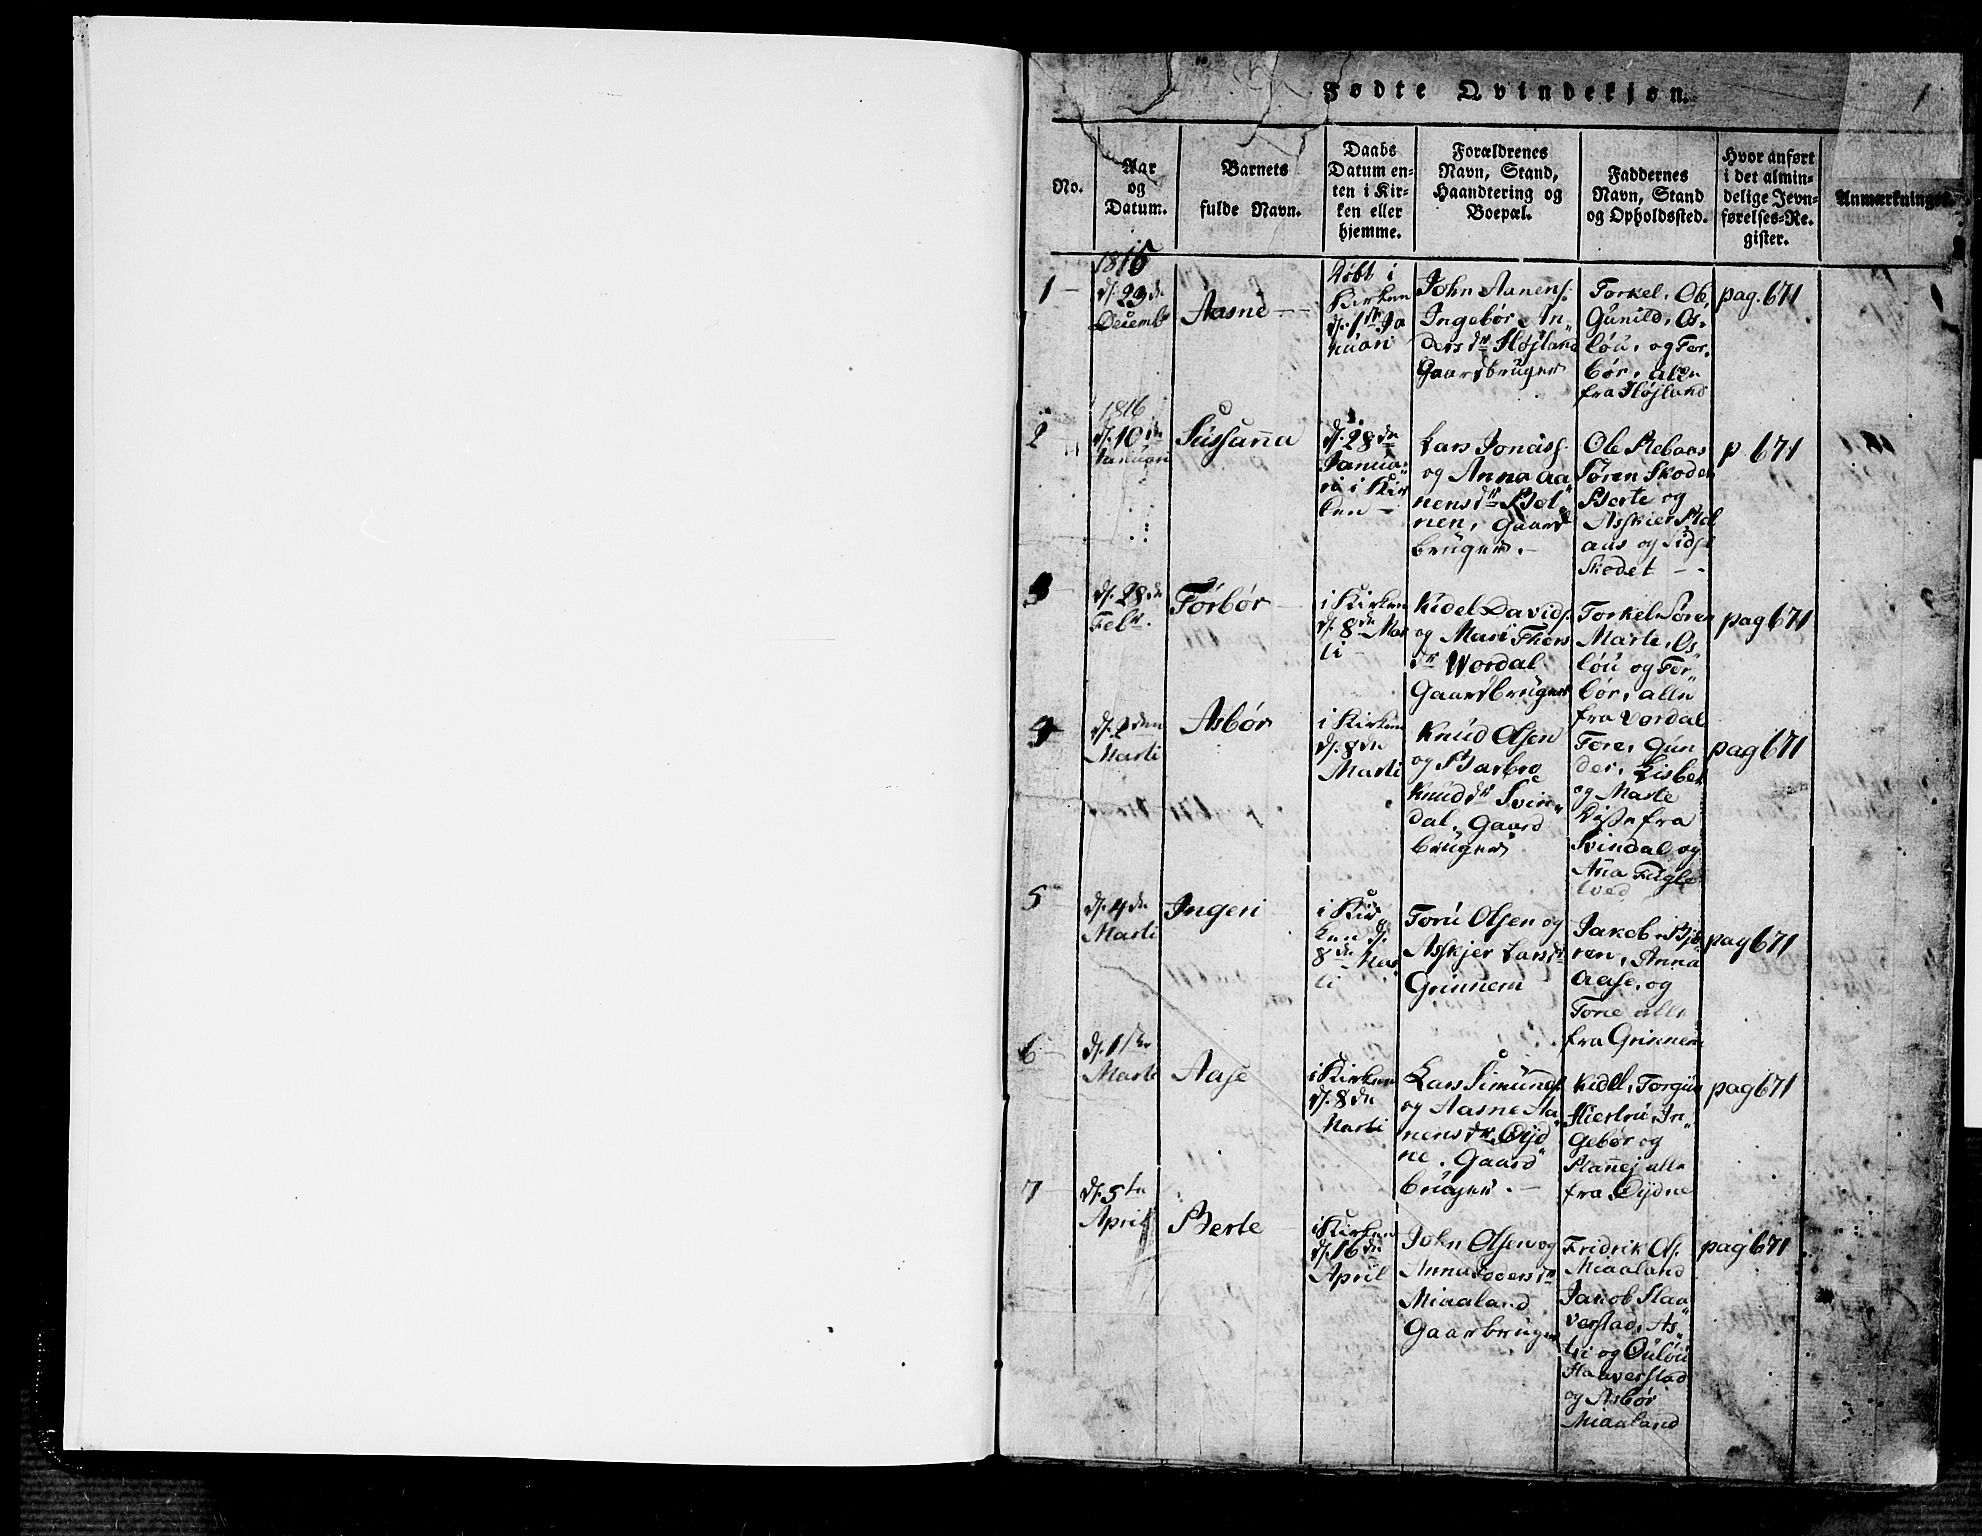 Fødte Qvindekjøn.
1
No.
Aar
og
Datum.
Barnets
fulde Navn.
Daabs
Datum en-
ten i Kir-
ken eller
hjemme.
Forældrenes
Navn, Stand,
Haandtering og
Boepæl.
Faddernes
Navn, Stand
og Opholdssted.
Hvor anført
i det almin-
delige Jevn-
førelses-Re-
gister.
Anmærkninger.
1
1815
d. 29de
Decemb
Aasne
Døbt i
Kirken
d. 1ste Ja
nuari
John Aanens.
Ingebor An„
dersdr Højland
Gaardbruger
Torkel, Ole,
Gunild, Os„
løu, og Tor„
bør, alle
fra Højland
pag. 671
2
1816
d. 10de
Januari
Sussanna
d. 28de
Janua„
ri i Kir
ken
Lars Jonass.
og Anna Aa„
nensdr
nen, Gaard
bruger.
Ole Rebaas
Søren Skodet
Berte og
Asskier
aas og Sidsel
Skodet
p 671
3
d. 28de
Febr.
Torbør
i Kirken
d. 8de Mar
ti
Kidel Davids.
og Mari Thors
dr Wordal
Gaardbruger
Torkel, Søren
Marte, Os„
løu og Tor„
bør, alle
fra Vordal
pag 671
4
d. 2den
Marti
Asbør
i Kirken
d. 8de
Marti
Knud Olsen
og Barbro
Knudsdr Svin„
dal, Gaard
bruger
Tore, Gun
der, Lisbet
og Marte
Disse fra
Svindal og
Ana Fugle
tved
pag 671
5
d. 4de
Marti
Ingeri
i Kir
ken d.
8de Mar
ti
Tore Olsen og
Asskjer Larsdr
Grinnem
Jakob, Bjø„
ren, Anna
Aase, og
Tone alle
fra Grinnem
pag 671
6
d. 1ste
Marti
Aase
i Kirken
d. 8de
Marti
Lars Simunds.
og Aasne Aa„
nensdr Øyd„
ne, Gaard„
bruger.
Kidel, Torgiu
Kiertru, In„
gebør og
Hannej alle
fra Øydne
pag 671
7
d. 5te
April
Berte
i Kirken
d. 16de
April
John Olsen og
Anna Pedersdr
Miaaland
Gaarbruger
Fridrik Ols.
Miaaland
Jakob Haa„
verstad, As„
tri og Ouløu
Haaverstad
og Asbør
Miaaland
pag 671